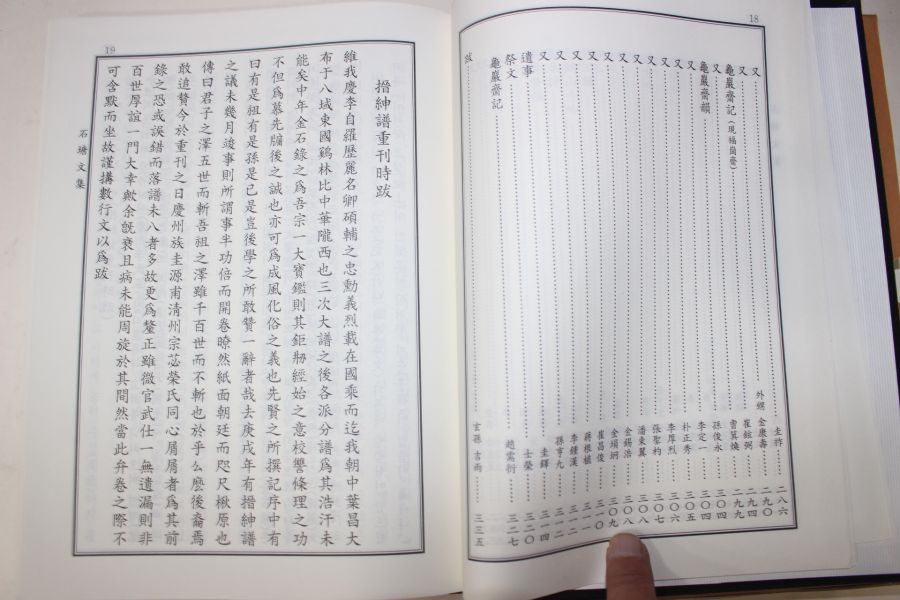 18
又 圭祚 二八六
又 外甥 金康壽 二九〇
龜巖齋記(現福崗齋) 崔鉉弼 二九四
又 曺箕煥 二九九
龜巖齋韻 孫俊永 三〇四
又 李定一 三〇四
又 朴正秀 三〇五
又 李厚烈 三〇六
又 張聖杓 三〇七
又 潘東翼 三〇八
又 金錫浩 三〇八
又 金瑱炯 三〇九
又 崔昌俊 三一〇
又 蔣根植 三一一
又 李鍾漢 三一二
又 孫亨九 三一二
遺事 圭鐸 三一四
祭文 士榮 三二〇
龜巖齋記 趙衍 三二七
跋 玄孫 書雨 三三五
19
搢紳譜重刊時跋
維我慶李自羅歷麗名卿碩輔之忠勳義烈載在國乘而迄我朝中葉昌大
布于八域東國鷄林比中華隴西也三次大譜之後各派分譜爲其浩汗未
能矣中年金石錄之爲吾宗一大寶鑑則其鉅刱經始之意校讐條理之功
不但爲慕先牖後之誠也亦可爲成風化俗之義也先賢之所撰記序中有
曰有是祖有是孫是已是豈後學之所敢贊一辭者哉去庚戌年有搢紳譜
之議未幾月竣事則所謂事半功倍而開卷暸然紙面朝廷而咫尺楸原也
傳曰君子之澤五世而斬吾祖之澤雖千百世而不斬也於乎么麽後裔焉
敢追贅今於重刊之日慶州族圭源甫淸州宗苾榮氏同心屑屑者爲其前
錄之恐或誤錯而落譜未入者多故更爲釐正雖微官武仕一無遺漏則非
百世厚誼一門大幸歟余旣衰且病未能周旋於其間然當此弁卷之際不
可含默而坐故謹搆數行文以爲跋
石塘文集